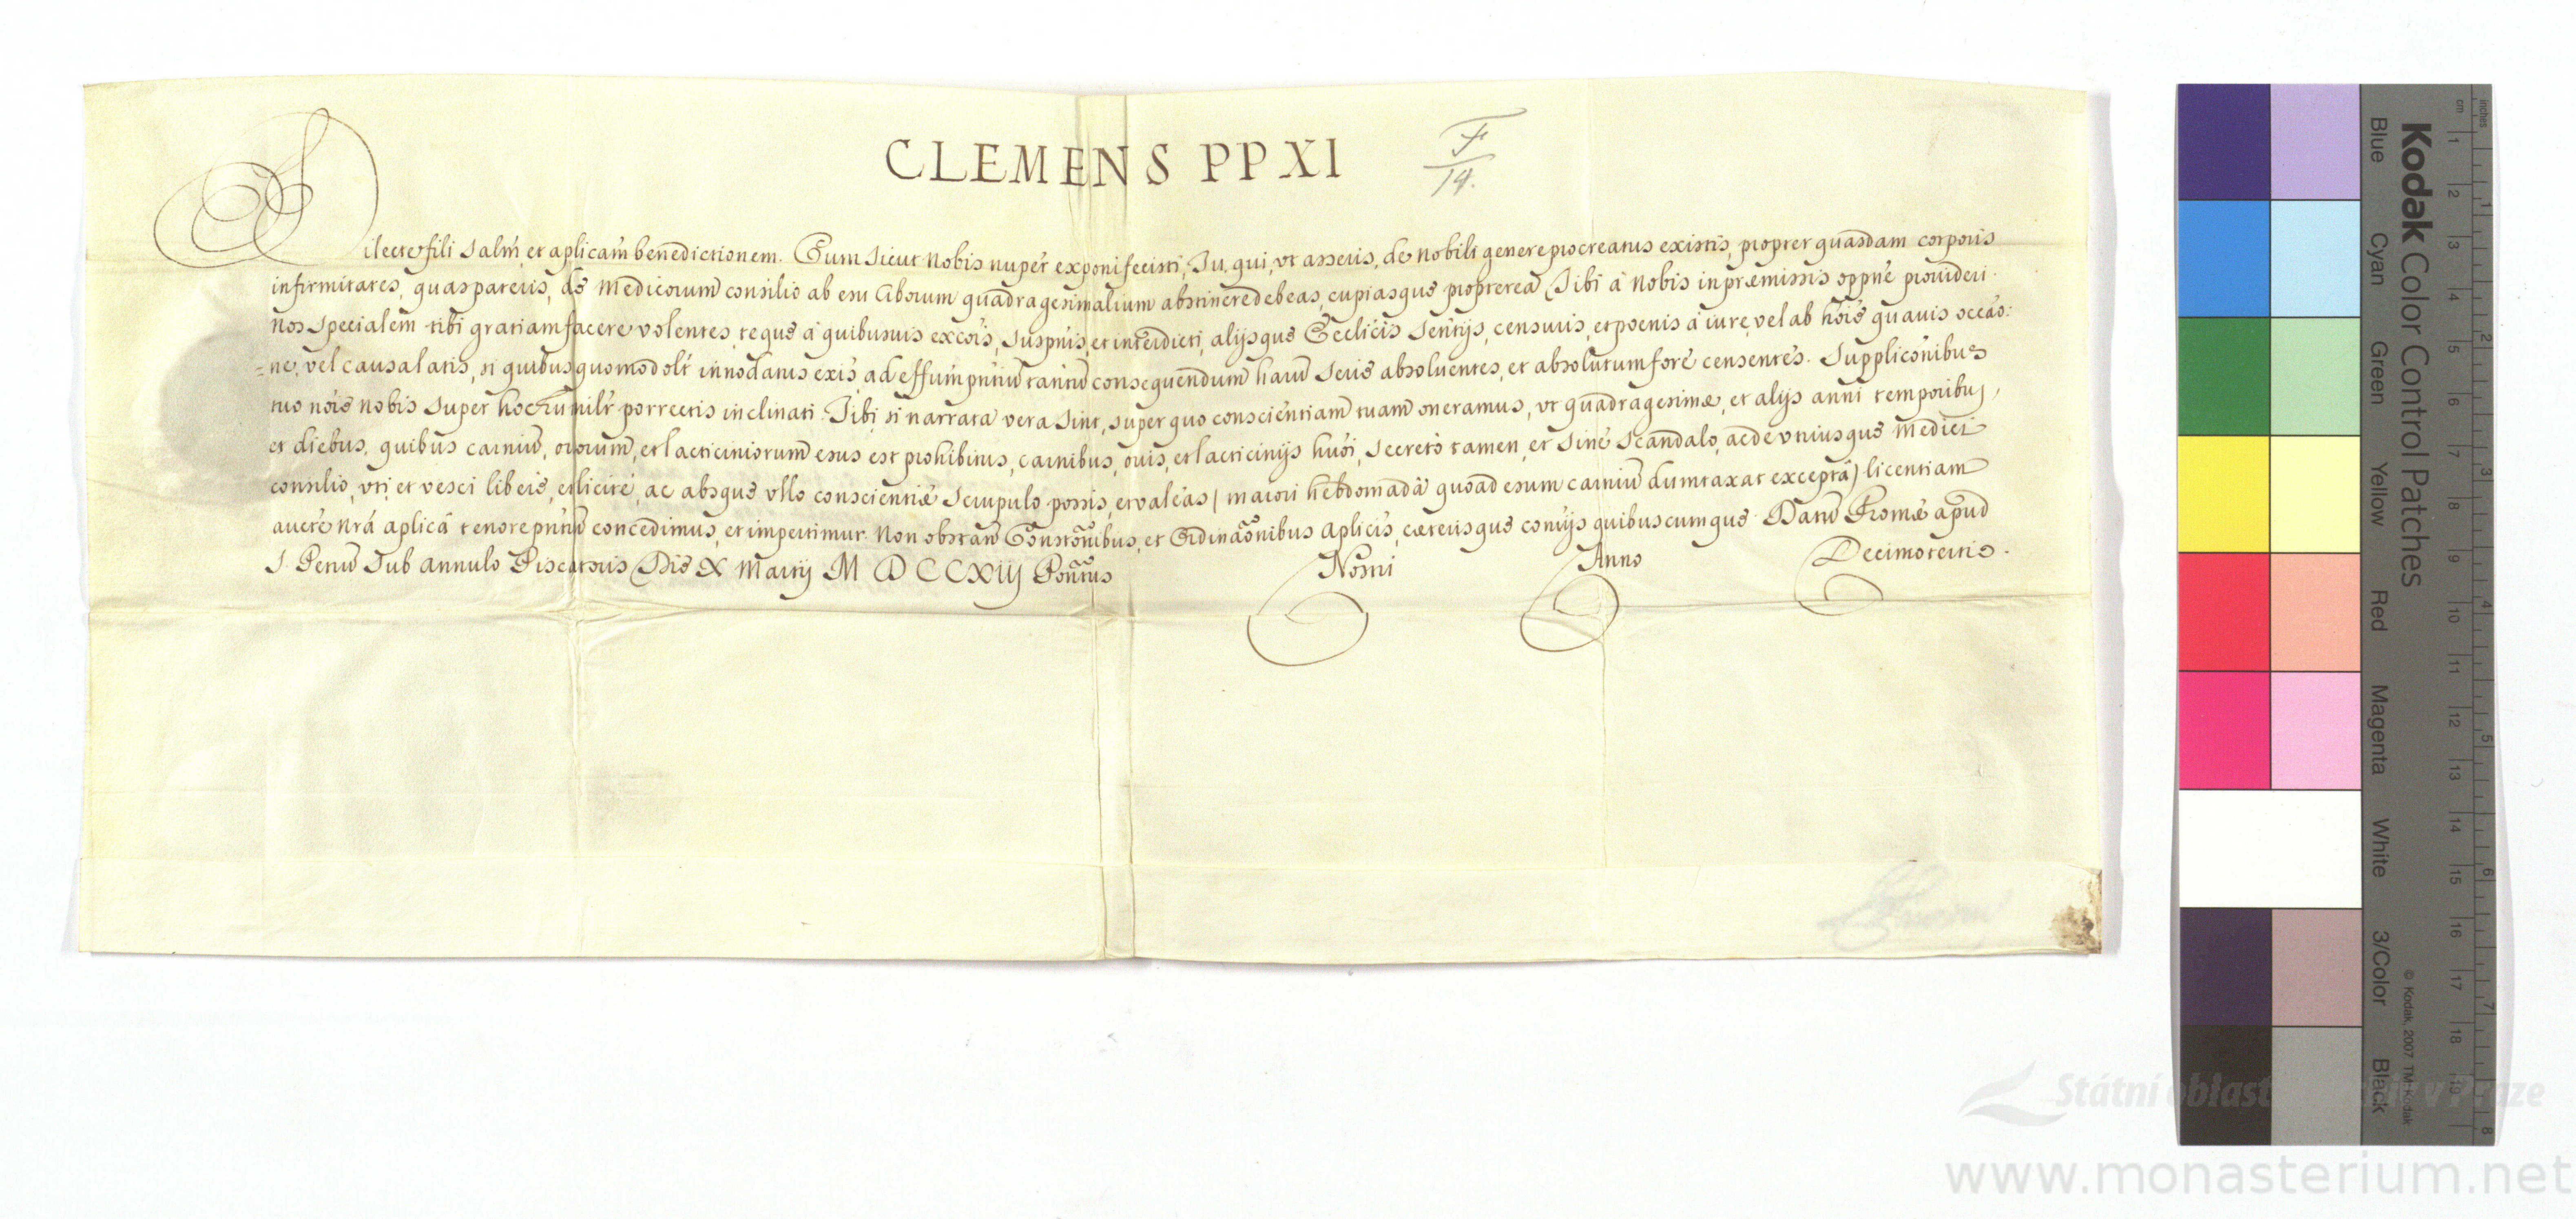 CLEMENS PP XI
F
14.
Dilecte fili salm̃, et aplicam̃ benedictionem. Cum sicut Nobis nuper exponi fecisti, Tu, qui, vt asseris, de Nobili genere procreatus existis, propter quasdam corporis
infirmitates, quas pateris, de Medicorum consilio ab esu Ciborum quadragesimalium abstinere debeas, cupiasque propterea Tibi à Nobis in præmissis oppñe prouideri.
Nos specialem tibi gratiam facere volentes, teque à quibusuis excõis, suspñis, et interdicti, alijsque Ecclicis Sentijs, censuris, et poenis à iure, vel ab hõie quauis occaõ:
=ne, vel causa latis, si quibus quomodolt innodatus exis, ad effum pñtium tantum consequendum harum Serie absoluentes, et absolutum fore censentes. Supplicõnibus
tuo nõie nobis super hoc humilr̃ porrectis inclinati. Tibi, si narrata vera sint, super quo conscientiam tuam oneramus, vt quadragesimæ, et alijs anni temporibus,
et diebus, quibus carnium, ouorum, et lacticiniorum esus est prohibitus, carnibus, ouis, et lacticinijs huõi, secretò tamen, et sine scandalo, ac de vtriusque Medici
consilio, vti, et vesci libere, et licite, ac absque vllo conscientiæ scrupulo possis, et valeas (maiori hebdomada quoad esum carnium dumtaxat excepta) licentiam
aucte Nrâ aplicâ tenore pñtium concedimus, et impertimur. Non obstan Constõnibus, et Ordinaõnibus aplicis, cæterisque contrijs quibuscumque. Datum Romæ apud
S. Petrum sub annulo Piscatoris Die X Martij MDCCXIIJ Pontus Nostri Anno Decimotertio.
Kodak Color Control Patches
Blue Cyan Green Yellow Red Magenta White 3/Color Black
© Kodak, 2007 TM: Kodak
inches 1 2 3 4 5 6 7 8
cm 1 2 3 4 5 6 7 8 9 10 11 12 13 14 15 16 17 18 19
Státní oblast v Praze
www.monasterium.net